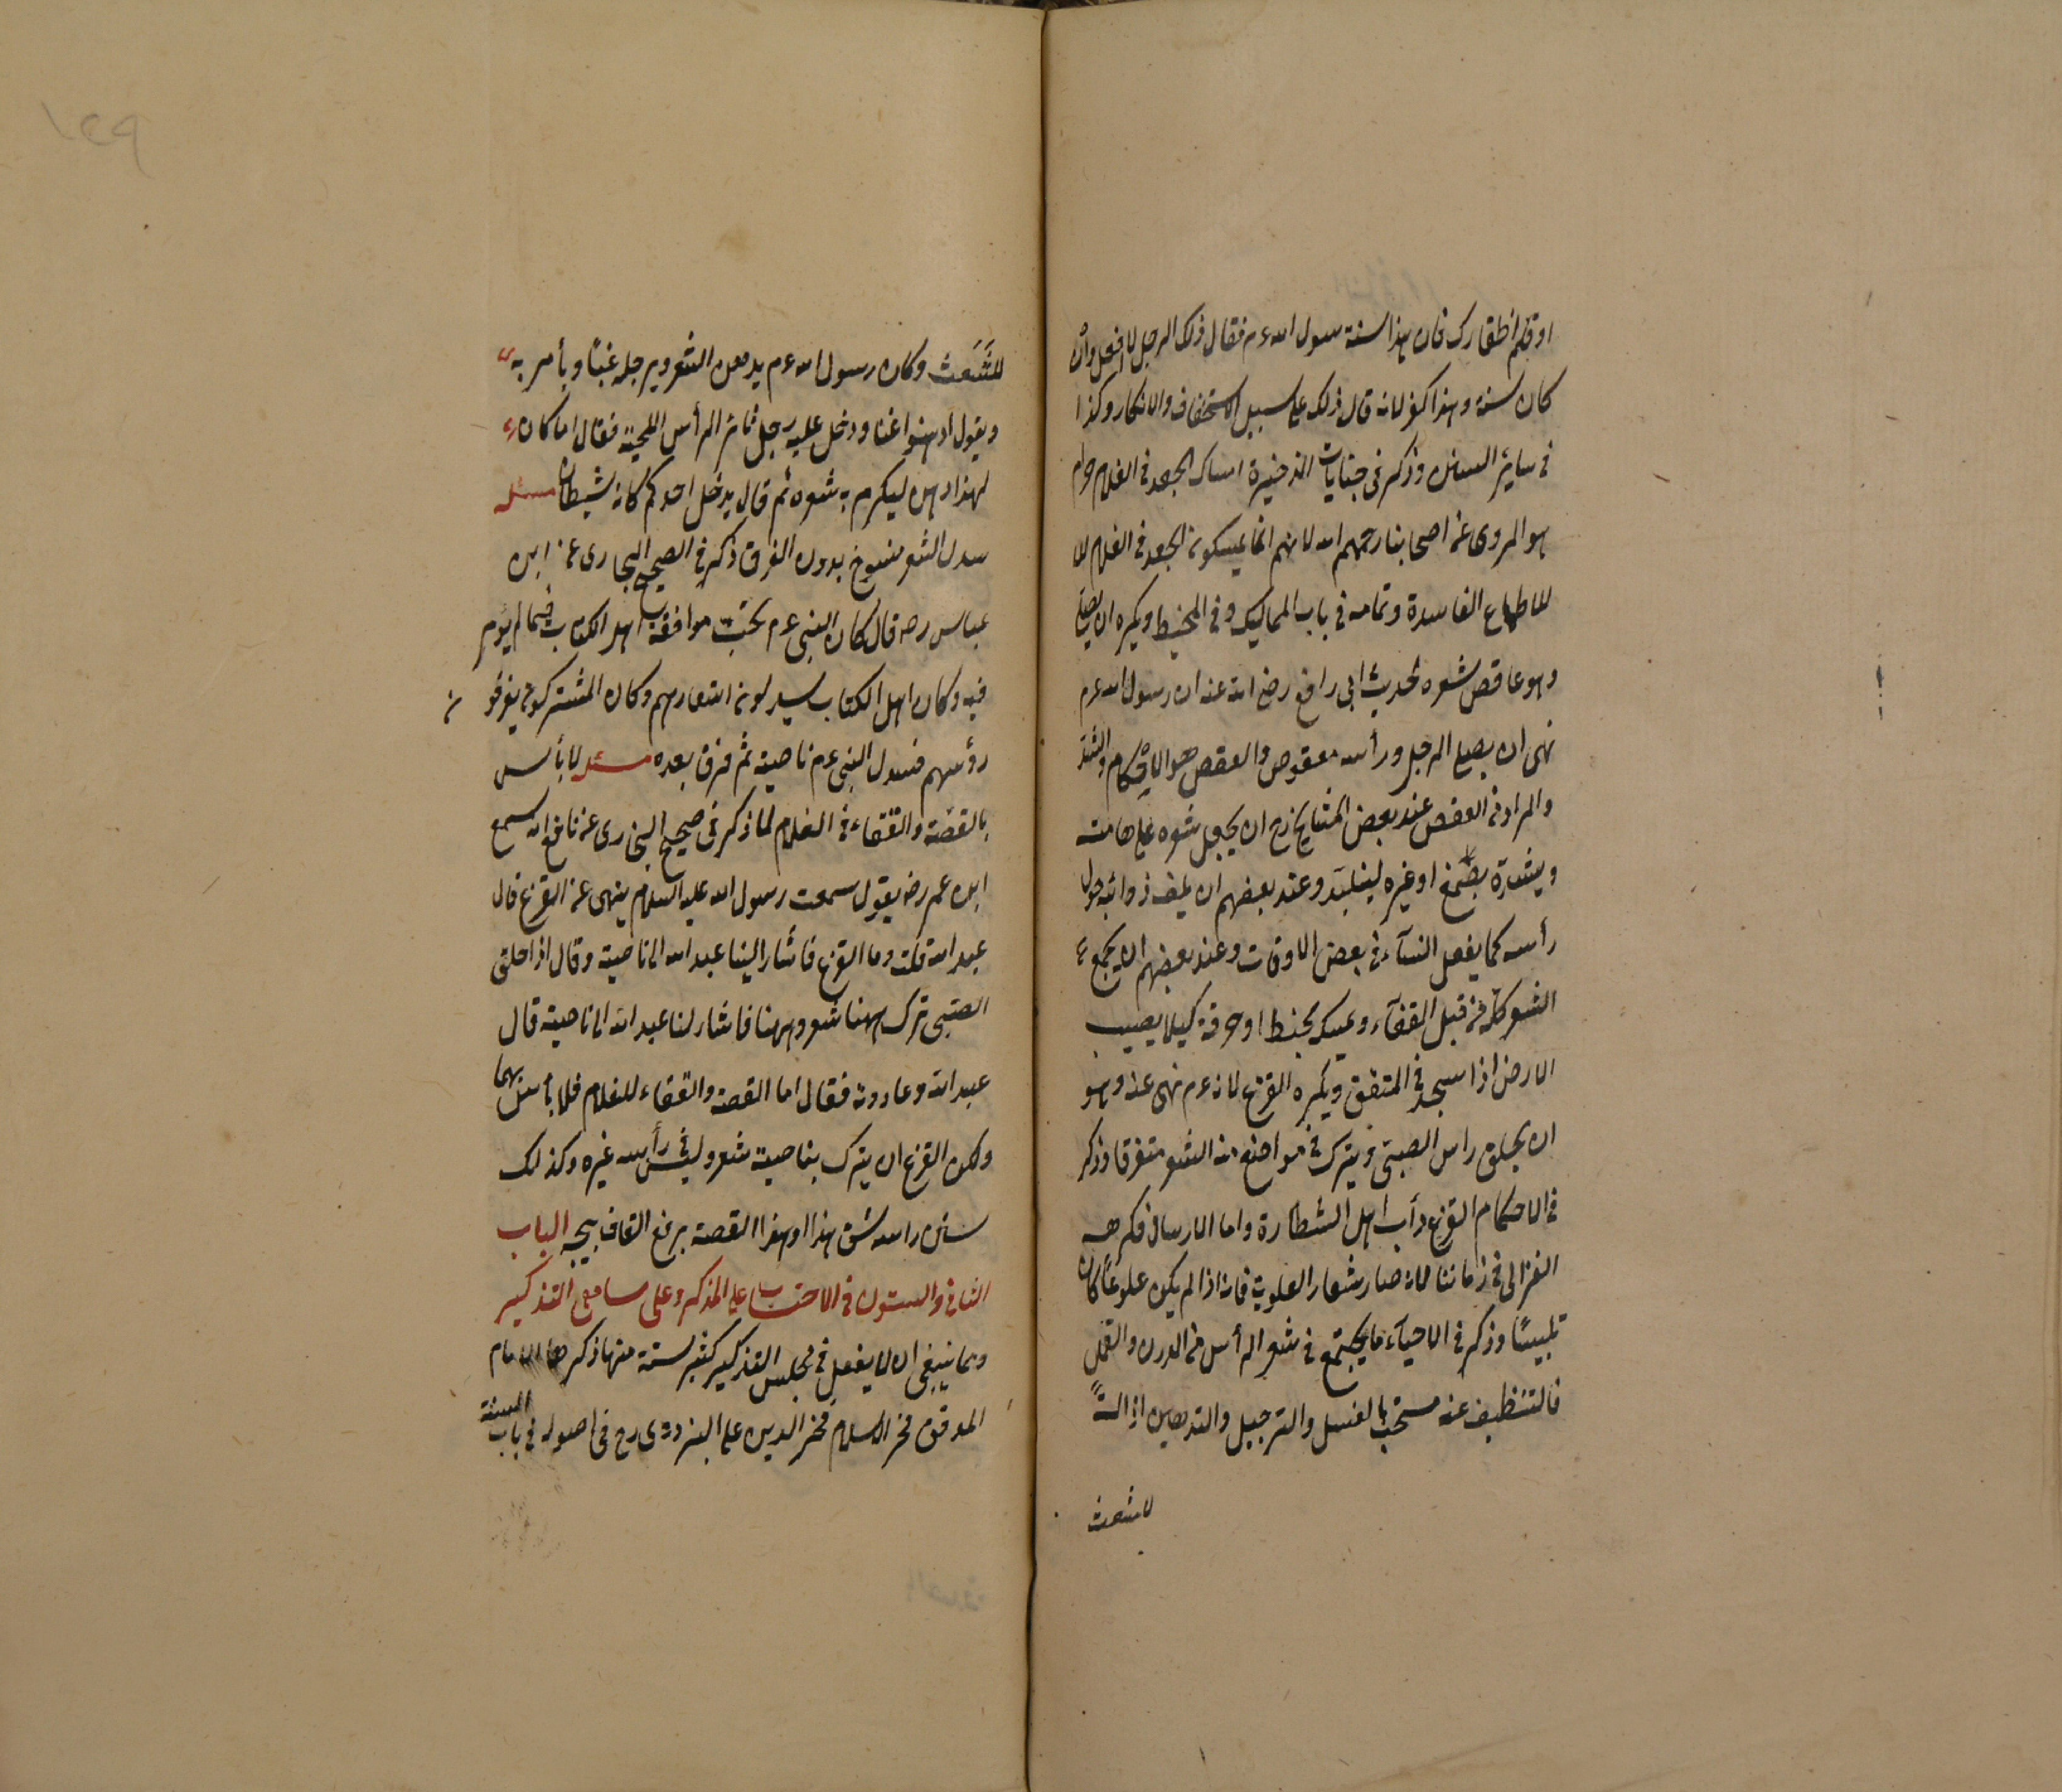 او قلم اظفارك فان هذا سنة رسول الله عم فقال ذلك الرجل لا افعل وان
كان سنة وهذا كفر لانه قال ذلك على سبيل الاستخفاف والانكار وكذا
في سائر السنن وذكر في جنايات الذخيرة امساك الجعد في الغلام حرام
هو المروى عن اصحابنا رحمهم الله لانهم انما يمسكون الجعد في الغلام للا
للاطماع الفاسدة وتمامه في باب المماليك وفي المحيط ويكره ان يصلى
وهو عاقص شعره لحديث ابى رافع رضى الله عنه ان رسول الله عم
نهى ان يصلى الرجل ورأسه معقوص والعقص هو الاحكام والشد
والمراد من العقص عند بعض المشايخ رح ان يجعل شعره على هامته
ويشده بصمغ او غيره ليتلبد وعند بعضهم ان يلف ذوائبه حول
رأسه كما يفعل النسآء في بعض الاوقات وعند بعضهم ان يجمع
الشعر كله من قبل القفآء ويمسكه بخيط او خرقة كيلا يصيب
الارض اذا سجد في المتفق ويكره القزع لانه عم نهى عنه وهو
ان يحلق راس الصبى ويترك في مواضع منه الشعر متفرقا وذكر
في الاحكام القزع دأب اهل الشطارة واما الارسال فكرهه
الغزالى في زماننا لانه صار شعار العلوية فانه اذا لم يكن علويًا كان
تلبيسًا وذكر في الاحيآء ما يجتمع في شعر الرأس من الدرن والقمل
فالتنظيف عنه مستحب بالغسل والترجيل والتدهين ازالةً
للشعث
للشَّعَث وكان رسول الله عم يدهن الشعر ويرجله غبًا ويأمر به
ويقول ادهنوا غبا ودخل عليه رجل ثائر الرأس اللحية فقال اما كان
لهذا دهن ليكرم به شعره ثم قال يدخل احدكم كانه شيطان مسئله
سدل الشعر منسوخ بدون الفرق ذكر في الصحيح البخارى عن ابن
عباس رضه قال كان النبى عم يحب موافقة اهل الكتاب فيما لم يؤمر
فيه وكان اهل الكتاب يسدلون اشعارهم وكان المشركون يفرقون
رؤسهم فسدل النبى عم ناصيته ثم فرق بعده مسئله لا بأس
بالقصة والقفاء في الغلام لما ذكر في صحيح البخارى عن نافع انه سمع
ابن عمر رضه يقول سمعت رسول الله عليه السلام ينهى عن القزع قال
عبد الله قلت وما القزع فأشار الينا عبد الله الى ناصيته وقال اذا حلق
الصبى ترك ههنا شعر وههنا فاشار لنا عبد الله الى ناصيته قال
عبد الله وعاودته فقال اما القصة والقفاء للغلام فلا بأس بهما
ولكن القزع ان يترك بناصيته شعر وليس في رأسه غيره وكذلك
شق راسه شق هذا او هذا القصة برفع القاف يجه الباب
الثانى والستون في الاحتساب على المذكر وعلى سامعى التذكير
ومما ينبغى ان لا يفعل في مجلس التذكير كثير ستة منها ذكر الامام
الموفق فخر الاسلام فخر الدين على البزدوى رح في اصوله في باب السنة